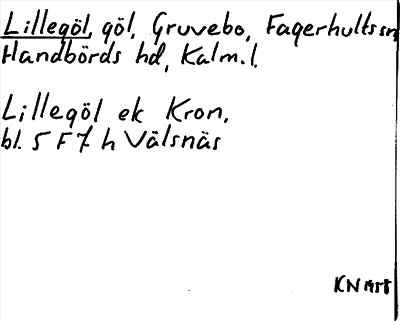 Lillegöl, göl, Gruvebo, Fagerhults sn
Handbörds hd, Kalm. l.
Lillegöl ek Kron.
bl. 5 F 7 h Välsnäs